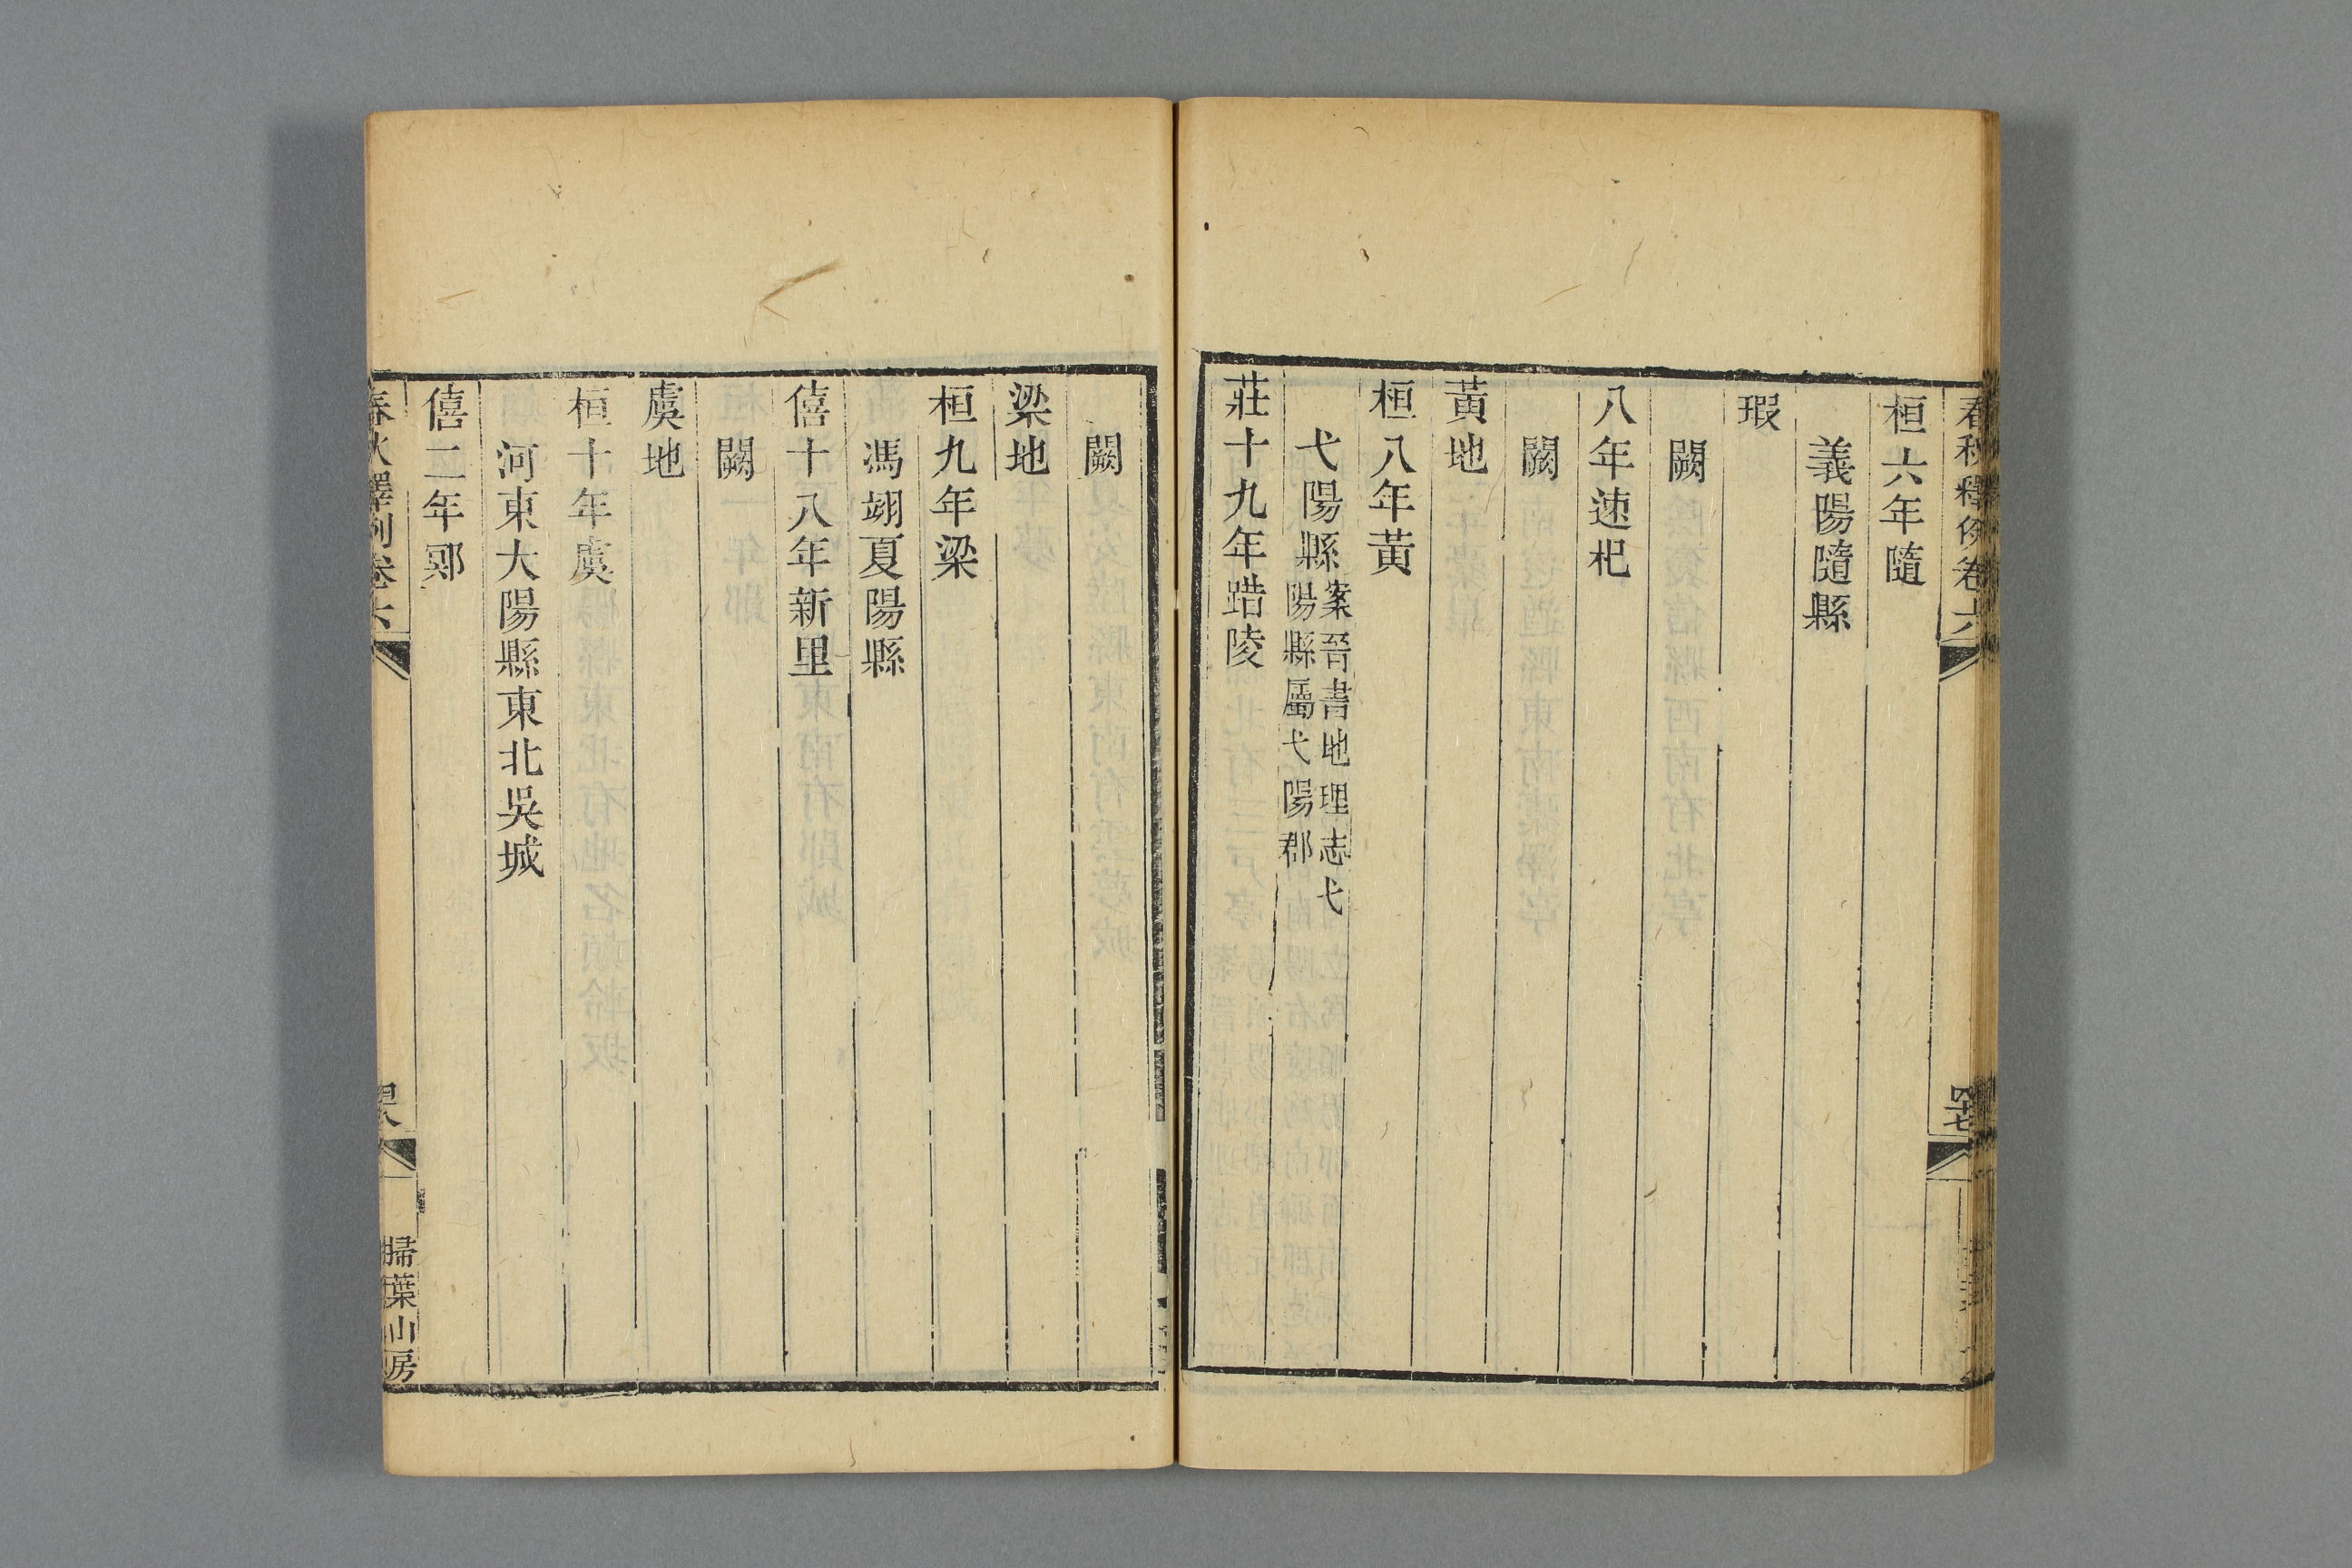 春秋釋例卷六
四十七
桓六年隨
義陽隨縣
瑕
闕
八年速杞
闕
黃地
桓八年黃
弋陽縣案晉書地理志弋
陽縣屬弋陽郡
莊十九年踖陵
闕
梁地
桓九年梁
馮翊夏陽縣
僖十八年新里
闕
虞地
桓十年虞
河東大陽縣東北吳城
僖二年鄍
春秋釋例卷六
掃葉山房